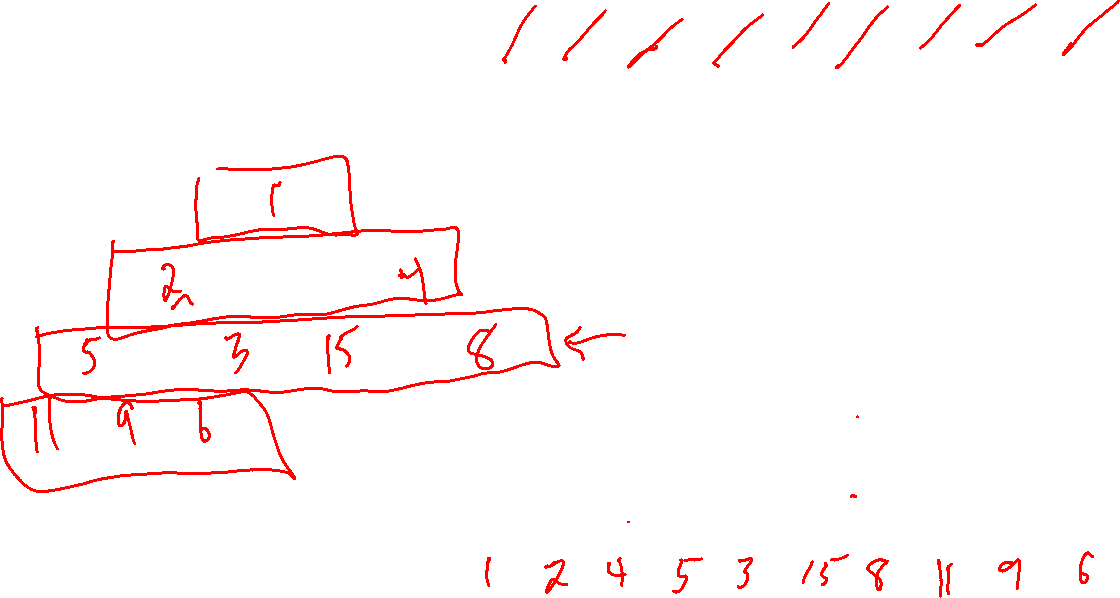 1
2 4
5 3 15 8
11 9 6
1 2 4 5 3 15 8 11 9 6